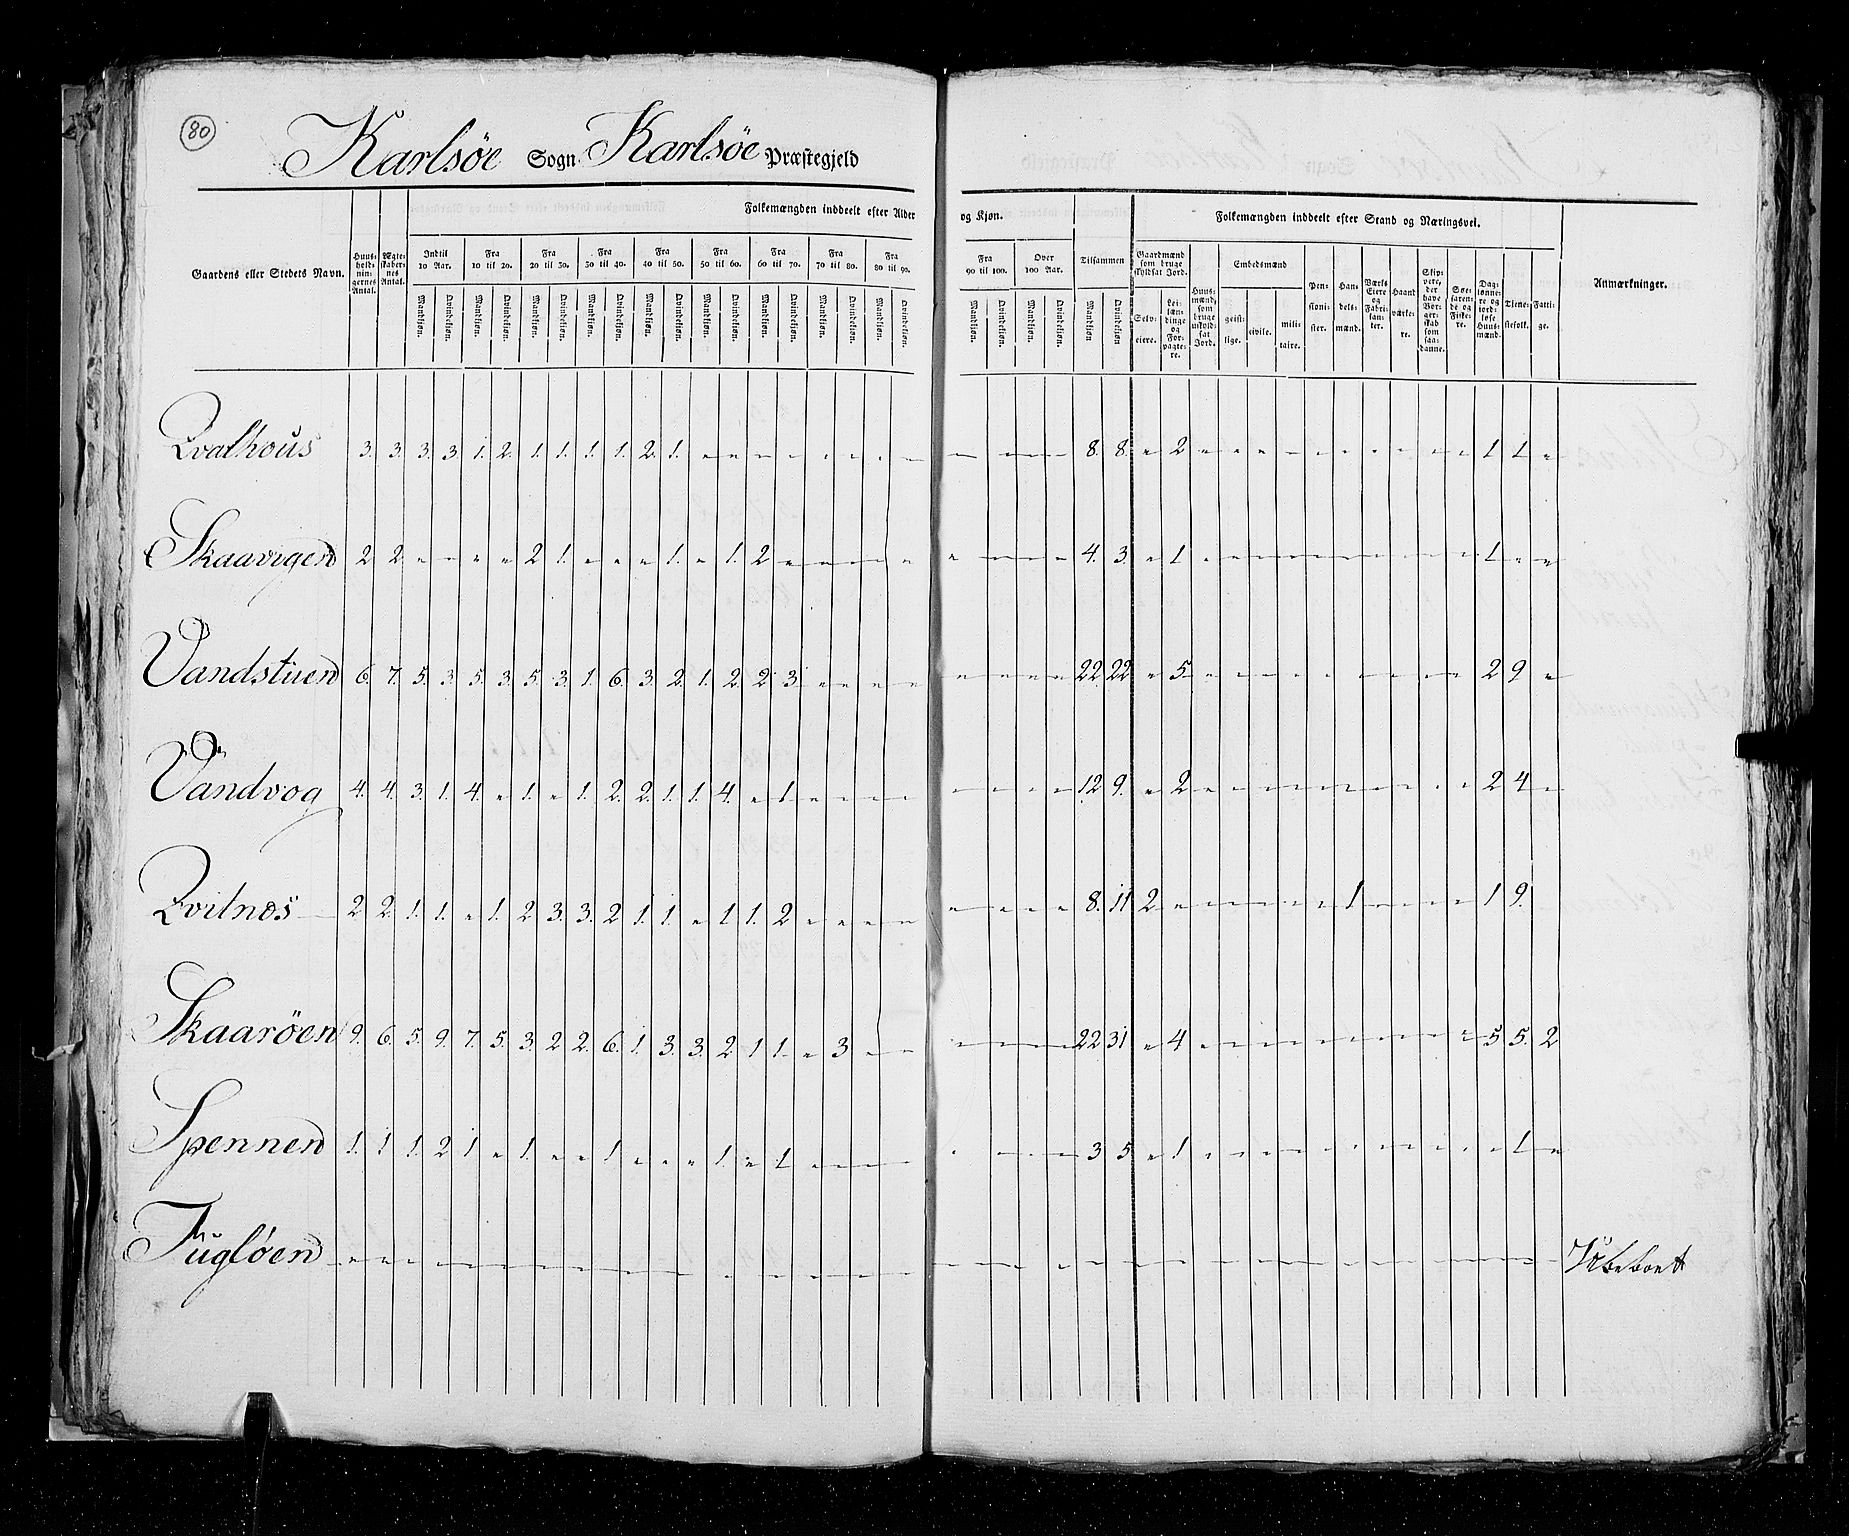 80
Karlsøe Sogn. Karlsøe Præstegjeld
Folkemængden inddeelt efter Alder og Kjøn. Tilsammen Folkemængden inddeelt efter Stand og Næringsvei.
Gaardens eller Stedets Navn. Huusholdningernes Antal. Ægteskabernes Antal. Indtil 10 Aar. Fra 10 til 20. Fra 20 til 30. Fra 30 til 40. Fra 40 til 50. Fra 50 til 60. Fra 60 til 70. Fra 70 til 80. Fra 80 til 90. Fra 90 til 100. Over 100 Aar. Gaardmænd som bruge skyldsat Jord. Huusmænd, som bruge uskyldsat Jord. Embedsmænd Pensionister. Handelsmænd. Værks Eiere og Fabrikanter. Haandværkere. Skippere, der have Borgerskab som saadanne. Søefarende og Fiskere. Daglønnere og jordløse Huusmænd. Tienestefolk. Fattige. Anmærkninger.
Mandkjøn. Qvindekjøn. Mandkjøn. Qvindekjøn. Mandkjøn. Qvindekjøn. Mandkjøn. Qvindekjøn. Mandkjøn. Qvindekjøn. Mandkjøn. Qvindekjøn. Mandkjøn. Qvindekjøn. Mandkjøn. Qvindekjøn. Mandkjøn. Qvindekjøn. Mandkjøn. Qvindekjøn. Mandkjøn. Qvindekjøn. Mandkjøn Qvindekjøn Selveiere. Leilændinge og Forpagtere. geistlige. civile. militaire.
Qvalhous 3. 3. 3. 3 1. 2. 1. 1. 1. 1. 2. 1. - - - - - - - - - - - - 8. 8. - 2 - - - - - - - - - - 1 1. -
Skaavigen 2 2. - - - - 2 1. - - - 1. - 1. 2 - - - - - - - - - 4. 3. - 1 - - - - - - - - - - 1. - -
Vandstuen 6. 7. 5. 3. 5. 3. 5. 3. 1. 6. 3. 2. 1. 2. 2 3 - - - - - - - - 22. 22 - 5. - - - - - - - - - - 2 9. -
Vandvog 4. 4. 3. 1. 4. - 1. - 1. 2. 2. 1. 1. 4. - 1. - - - - - - - - 12 9. - 2 - - - - - - - - - - 2 4. -
Qvitnes 2 2. 1. 1. - 1. 2 3. 3. 2 1. 1. - 1. 1. 2 - - - - - - - - 8. 11 2 - - - - - - - 1 - - - 1 9.
Skaarøen 9. 6. 5. 9. 7. 5. 3. 2 2. 6. 1. 3. 3. 2 1 1. - 3 - - - - - - 22 31 - 4 - - - - - - - - - - 5 5. 2
Spennen 1. 1 1. 2 1 - 1. - - 1. - - - 1. - 1. - - - - - - - - 3 5. - 1 - - - - - - - - - - - 1. -
Fugløen - - - - - - - - - - - - - - - - - - - - - - - - - - - - - - - - - - - - - - - - - Ubeboet